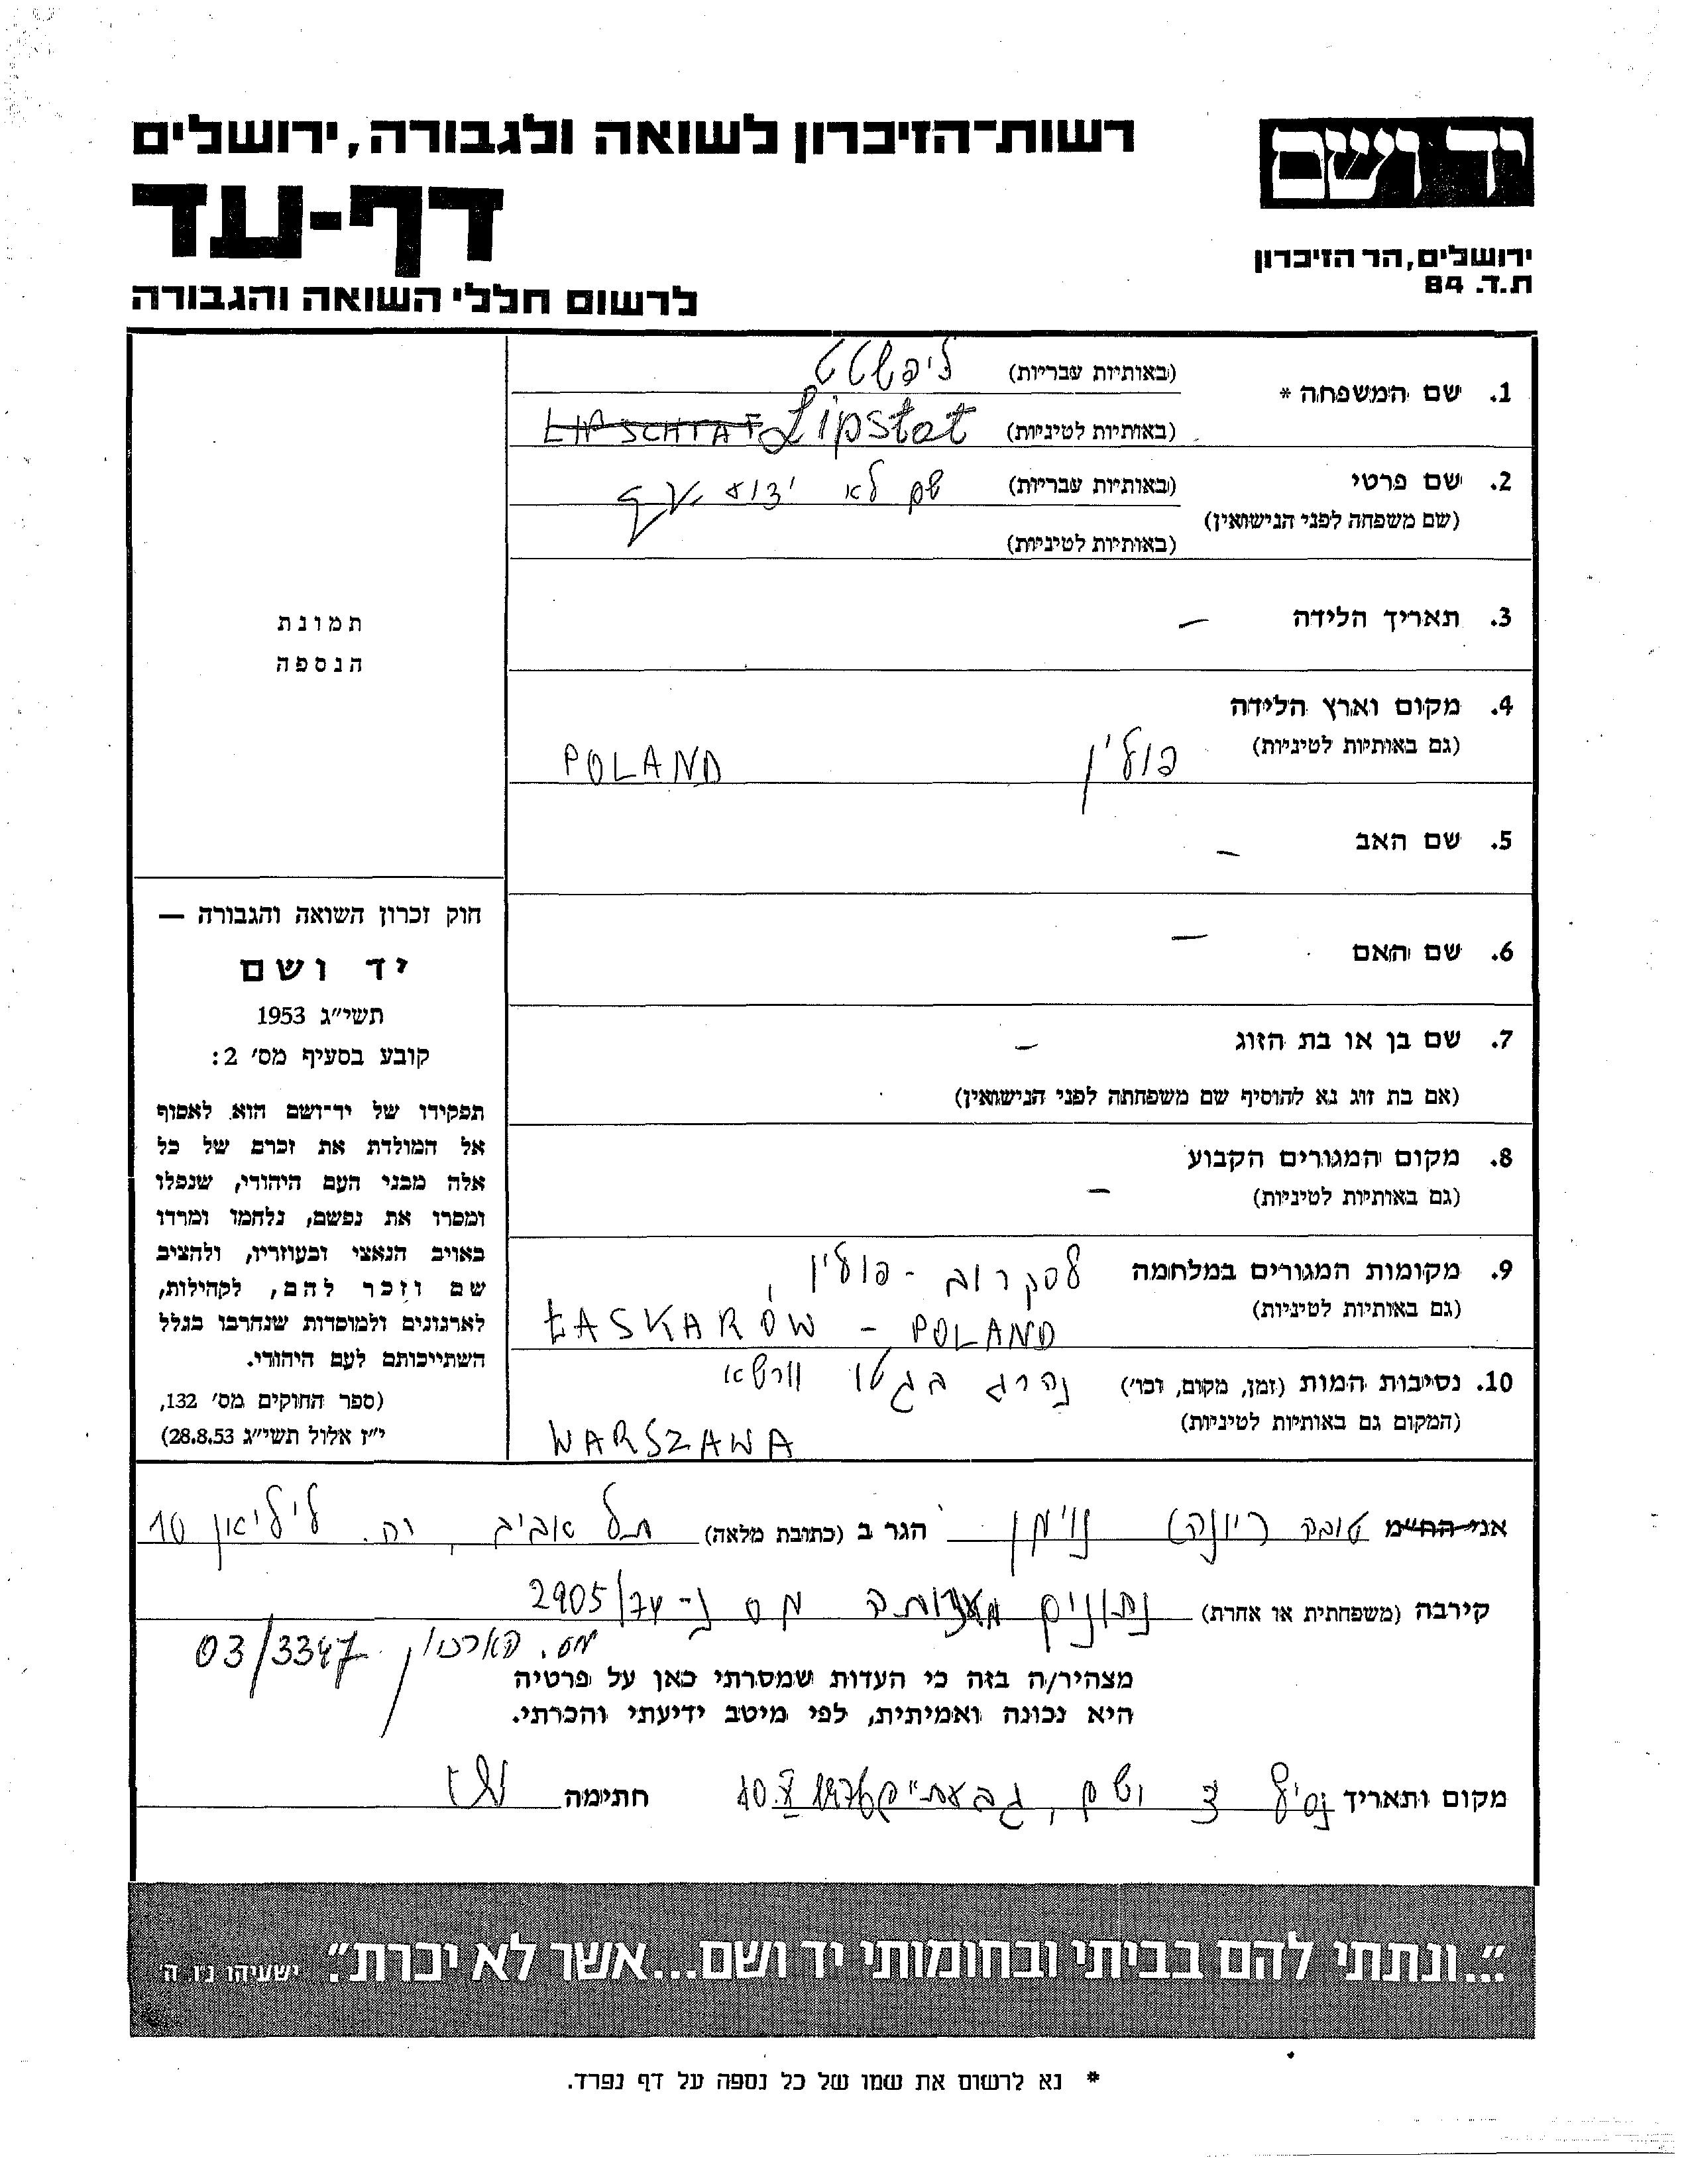 רשות־הזיכרון לשואה ולגבורה, ירושלים
דף-עד
לרשום חללי השואה והגבורה
יד ושם
ירושלים, הר הזיכרון
ת.ד. 84
1. שם המשפחה *
(באותיות עבריות) ליפשטט
(באותיות לטיניות) LIPSCHTAT Lipstat
2. שם פרטי
(באותיות עבריות) שם לא ידוע
(שם משפחה לפני הנישואין)
(באותיות לטיניות)
3. תאריך הלידה –
4. מקום וארץ הלידה
(גם באותיות לטיניות) פולין POLAND
5. שם האב –
6. שם האם –
7. שם בן או בת הזוג –
(אם בת זוג נא להוסיף שם משפחתה לפני הנישואין)
8. מקום המגורים הקבוע
(גם באותיות לטיניות) –
9. מקומות המגורים במלחמה לסקרוב - פולין,
(גם באותיות לטיניות) ŁASKARÓW - POLAND
10. נסיבות המות (זמן, מקום, וכו') נהרג בגטו וורשא
(המקום גם באותיות לטיניות) WARSZAWA
תמונת
הנספה
חוק זכרון השואה והגבורה —
יד ושם
תשי״ג 1953
קובע בסעיף מס' 2:
תפקידו של יד־ושם הוא לאסוף
אל המולדת את זכרם של כל
אלה מבני העם היהודי, שנפלו
ומסרו את נפשם, נלחמו ומרדו
באויב הנאצי ובעוזריו, ולהציב
שם וזכר להם, לקהילות,
לארגונים ולמוסדות שנחרבו בגלל
השתייכותם לעם היהודי.
(ספר החוקים מס' 132,
י״ז אלול תשי״ג 28.8.53)
אני הח״מ טובה (יונה) נוימן הגר ב (כתובת מלאה) תל אביב, רח. ליליאן 10
קירבה (משפחתית או אחרת) נתונים מעדותה מס נ-2905/74
מס. הארכיון 03/3347
מצהיר/ה בזה כי העדות שמסרתי כאן על פרטיה
היא נכונה ואמיתית, לפי מיטב ידיעתי והכרתי.
מקום ותאריך יד ושם, גבעתיים 10.X 1976 חתימה
״...ונתתי להם בביתי ובחומותי יד ושם...אשר לא יכרת״. ישעיהו נ״ו ה'
* נא לרשום את שמו של כל נספה על דף נפרד.